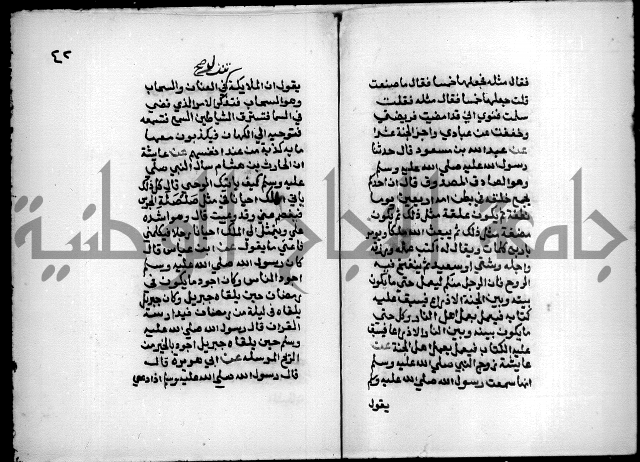 فقال مثله فجعلها خمسا فقال ما صنعت
قلت جعلها خمسا فقال مثله فقلت
سلمت فنودي اني قد امضيت فريضتي
وخففت عن عبادي واجزي الحسنة عشرا
عن عبد الله بن مسعود قال حدثنا
رسول الله صلي الله عليه وسلم
وهو الصادق المصدوق قال ان احدكم
يجمع خلقه في بطن امه اربعين يوما
ثم يكون علقة مثل ذلك ثم يكون
مضغة مثل ذلك ثم يبعث الله ملكا ويومر
باربع كلمات ويقال له اكتب عمله ورزقه
واجله وشقي او سعيد ثم ينفخ فيه
الروح فان الرجل منكم ليعمل حتي ما يكون
بينه وبين الجنة الا ذراع فيسبق عليه
كتابه فيعمل بعمل اهل النار ويعمل حتي
ما يكون بينه وبين النار الا ذراع فيسبق
عليه الكتاب فيعمل بعمل اهل الجنة عن
عايشة زوج النبي صلي الله عليه وسلم
انها سمعت رسول الله صلي الله عليه وسلم
يقول
٤٢
يقول ان الملايكة في العنان والسحاب
وهو السحاب فتذكر الامر الذي قضي
في السما فتسترق الشياطين السمع فتسمعه
فتوحيه الي الكهان فيكذبون معها
ماية كذبة من عند انفسهم عن عايشة
ان الحارث بن هشام سال النبي صلي
عليه وسلم كيف ياتيك الوحي قال كل ذلك
ياتي الملك احيانا في مثل صلصلة الجرس
فيفصم عني وقد وعيت قال وهو اشده
علي ويتمثل لي الملك احيانا رجلا فيكلمني
فاعي ما يقول عن ابن عباس قال
كان رسول الله صلي الله عليه وسلم
اجود الناس وكان اجود ما يكون في
رمضان حين يلقاه جبريل وكان جبريل
يلقاه في ليلة من رمضان فيدارسه
القران قال رسول الله صلي الله عليه
وسلم حين يلقاه جبريل اجود بالخير من
الريح المرسله عن ابي هريرة قال
قال رسول الله صلي الله عليه وسلم اذا دعي
جامعة النجاح الوطنية